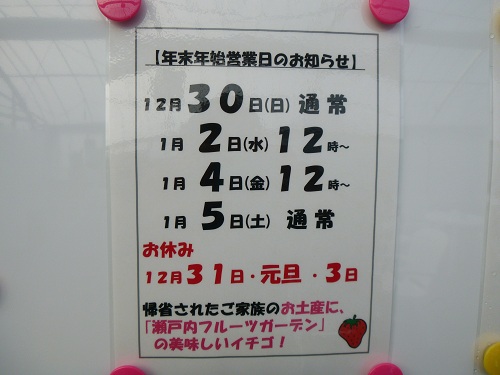 【年末年始営業日のお知らせ】
12月30日(日) 通常
1月 2日(水) 12時～
1月 4日(金) 12時～
1月 5日(土) 通常
お休み
12月31日・元旦・3日
帰省されたご家族のお土産に、
「瀬戸内フルーツガーデン」
の美味しいイチゴ！